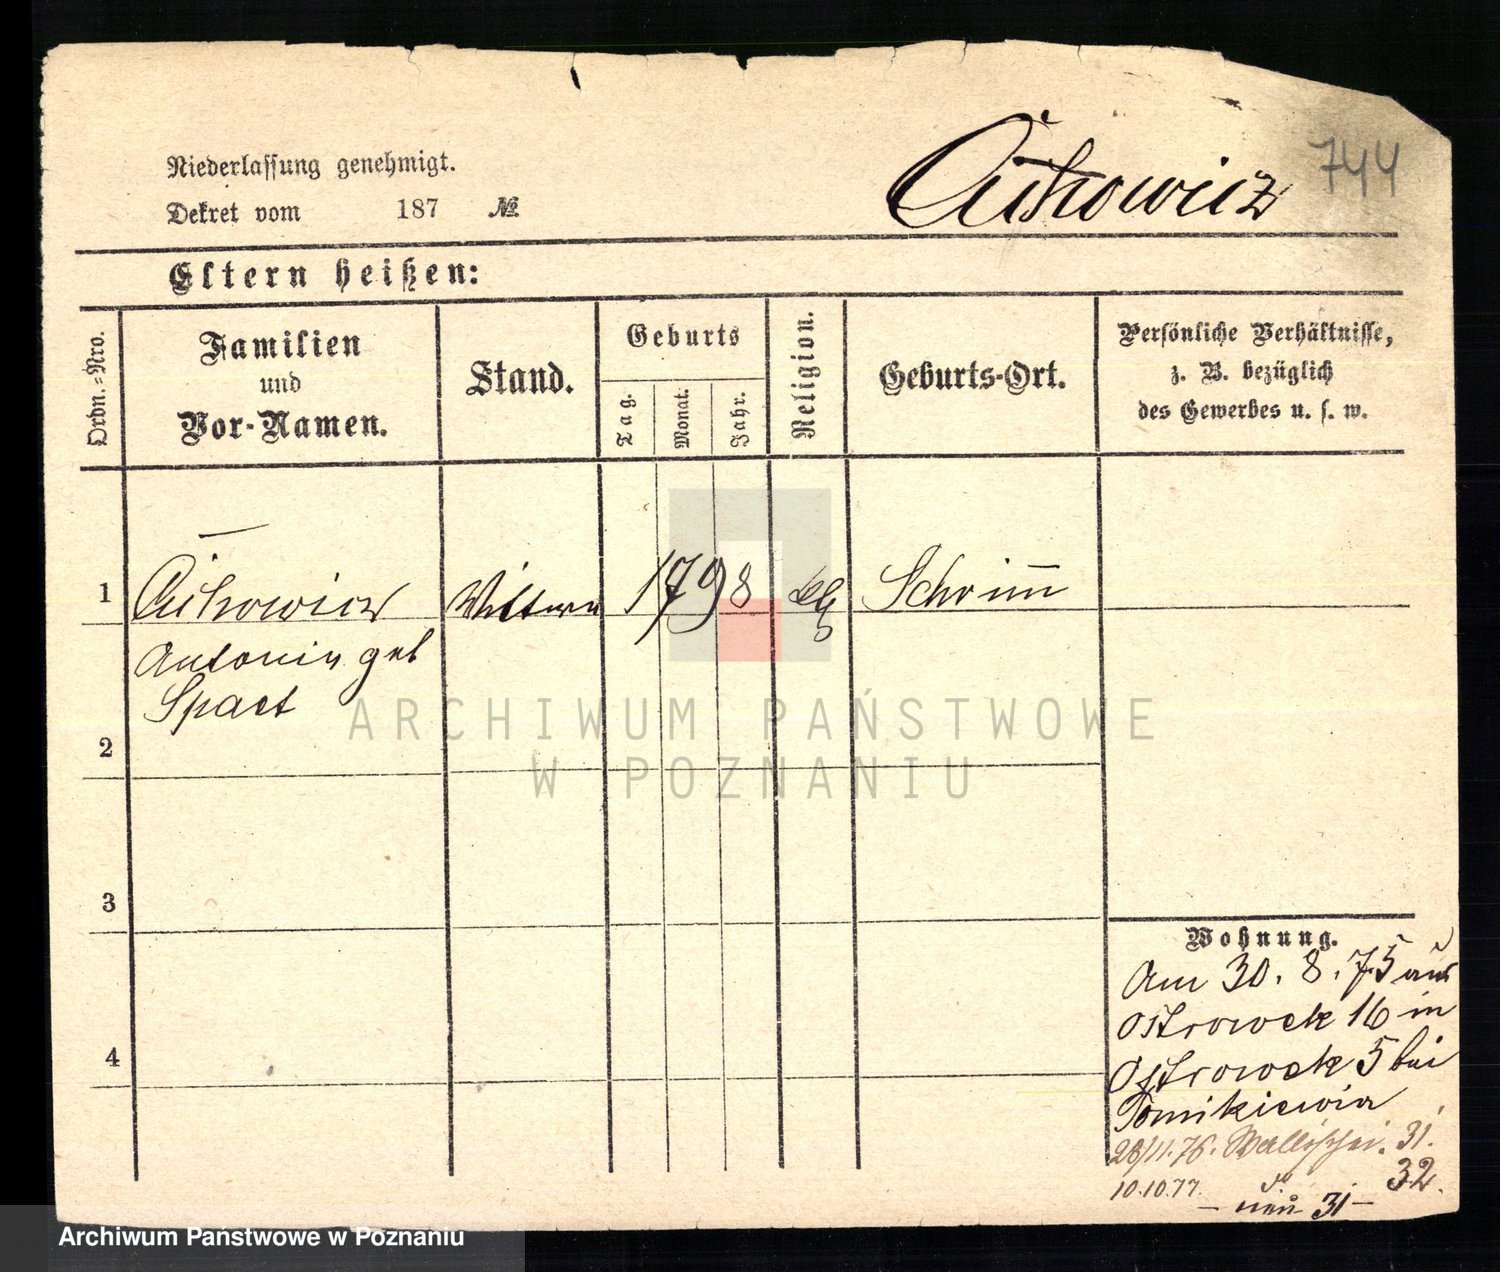 744
Niederlassung genehmigt.
Dekret vom 187 №
Cichowicz
Eltern heißen:
Ordn.=Nro.
Familien
und
Vor-Namen.
Stand.
Geburts
Tag.
Monat.
Jahr.
Religion.
Geburts-Ort.
Persönliche Verhältnisse,
z. B. bezüglich
des Gewerbes u. s. w.
1 Cichowicz Wittwe 1798 Schrimm
Antonia geb
Spaet
2
3
4
Wohnung.
Am 30. 8. 75 aus
Ostrowek 16 in
Ostrowek 5 bei
Tomikiewicz
28/11. 76. Wallischei. 31.
32.
10.10.77. do
— neu 31 —
ARCHIWUM PAŃSTWOWE
W POZNANIU
Archiwum Państwowe w Poznaniu